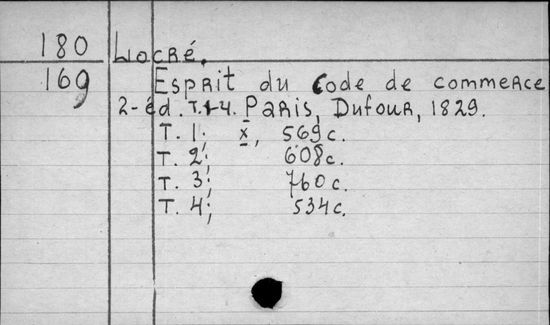 180 Locré.
169 Esprit du Code de commerce
2-éd. T. 1-4. Paris, Dufour, 1829.
T. 1; x, 569 c.
T. 2; 608 c.
T. 3; 760 c.
T. 4; 534 c.